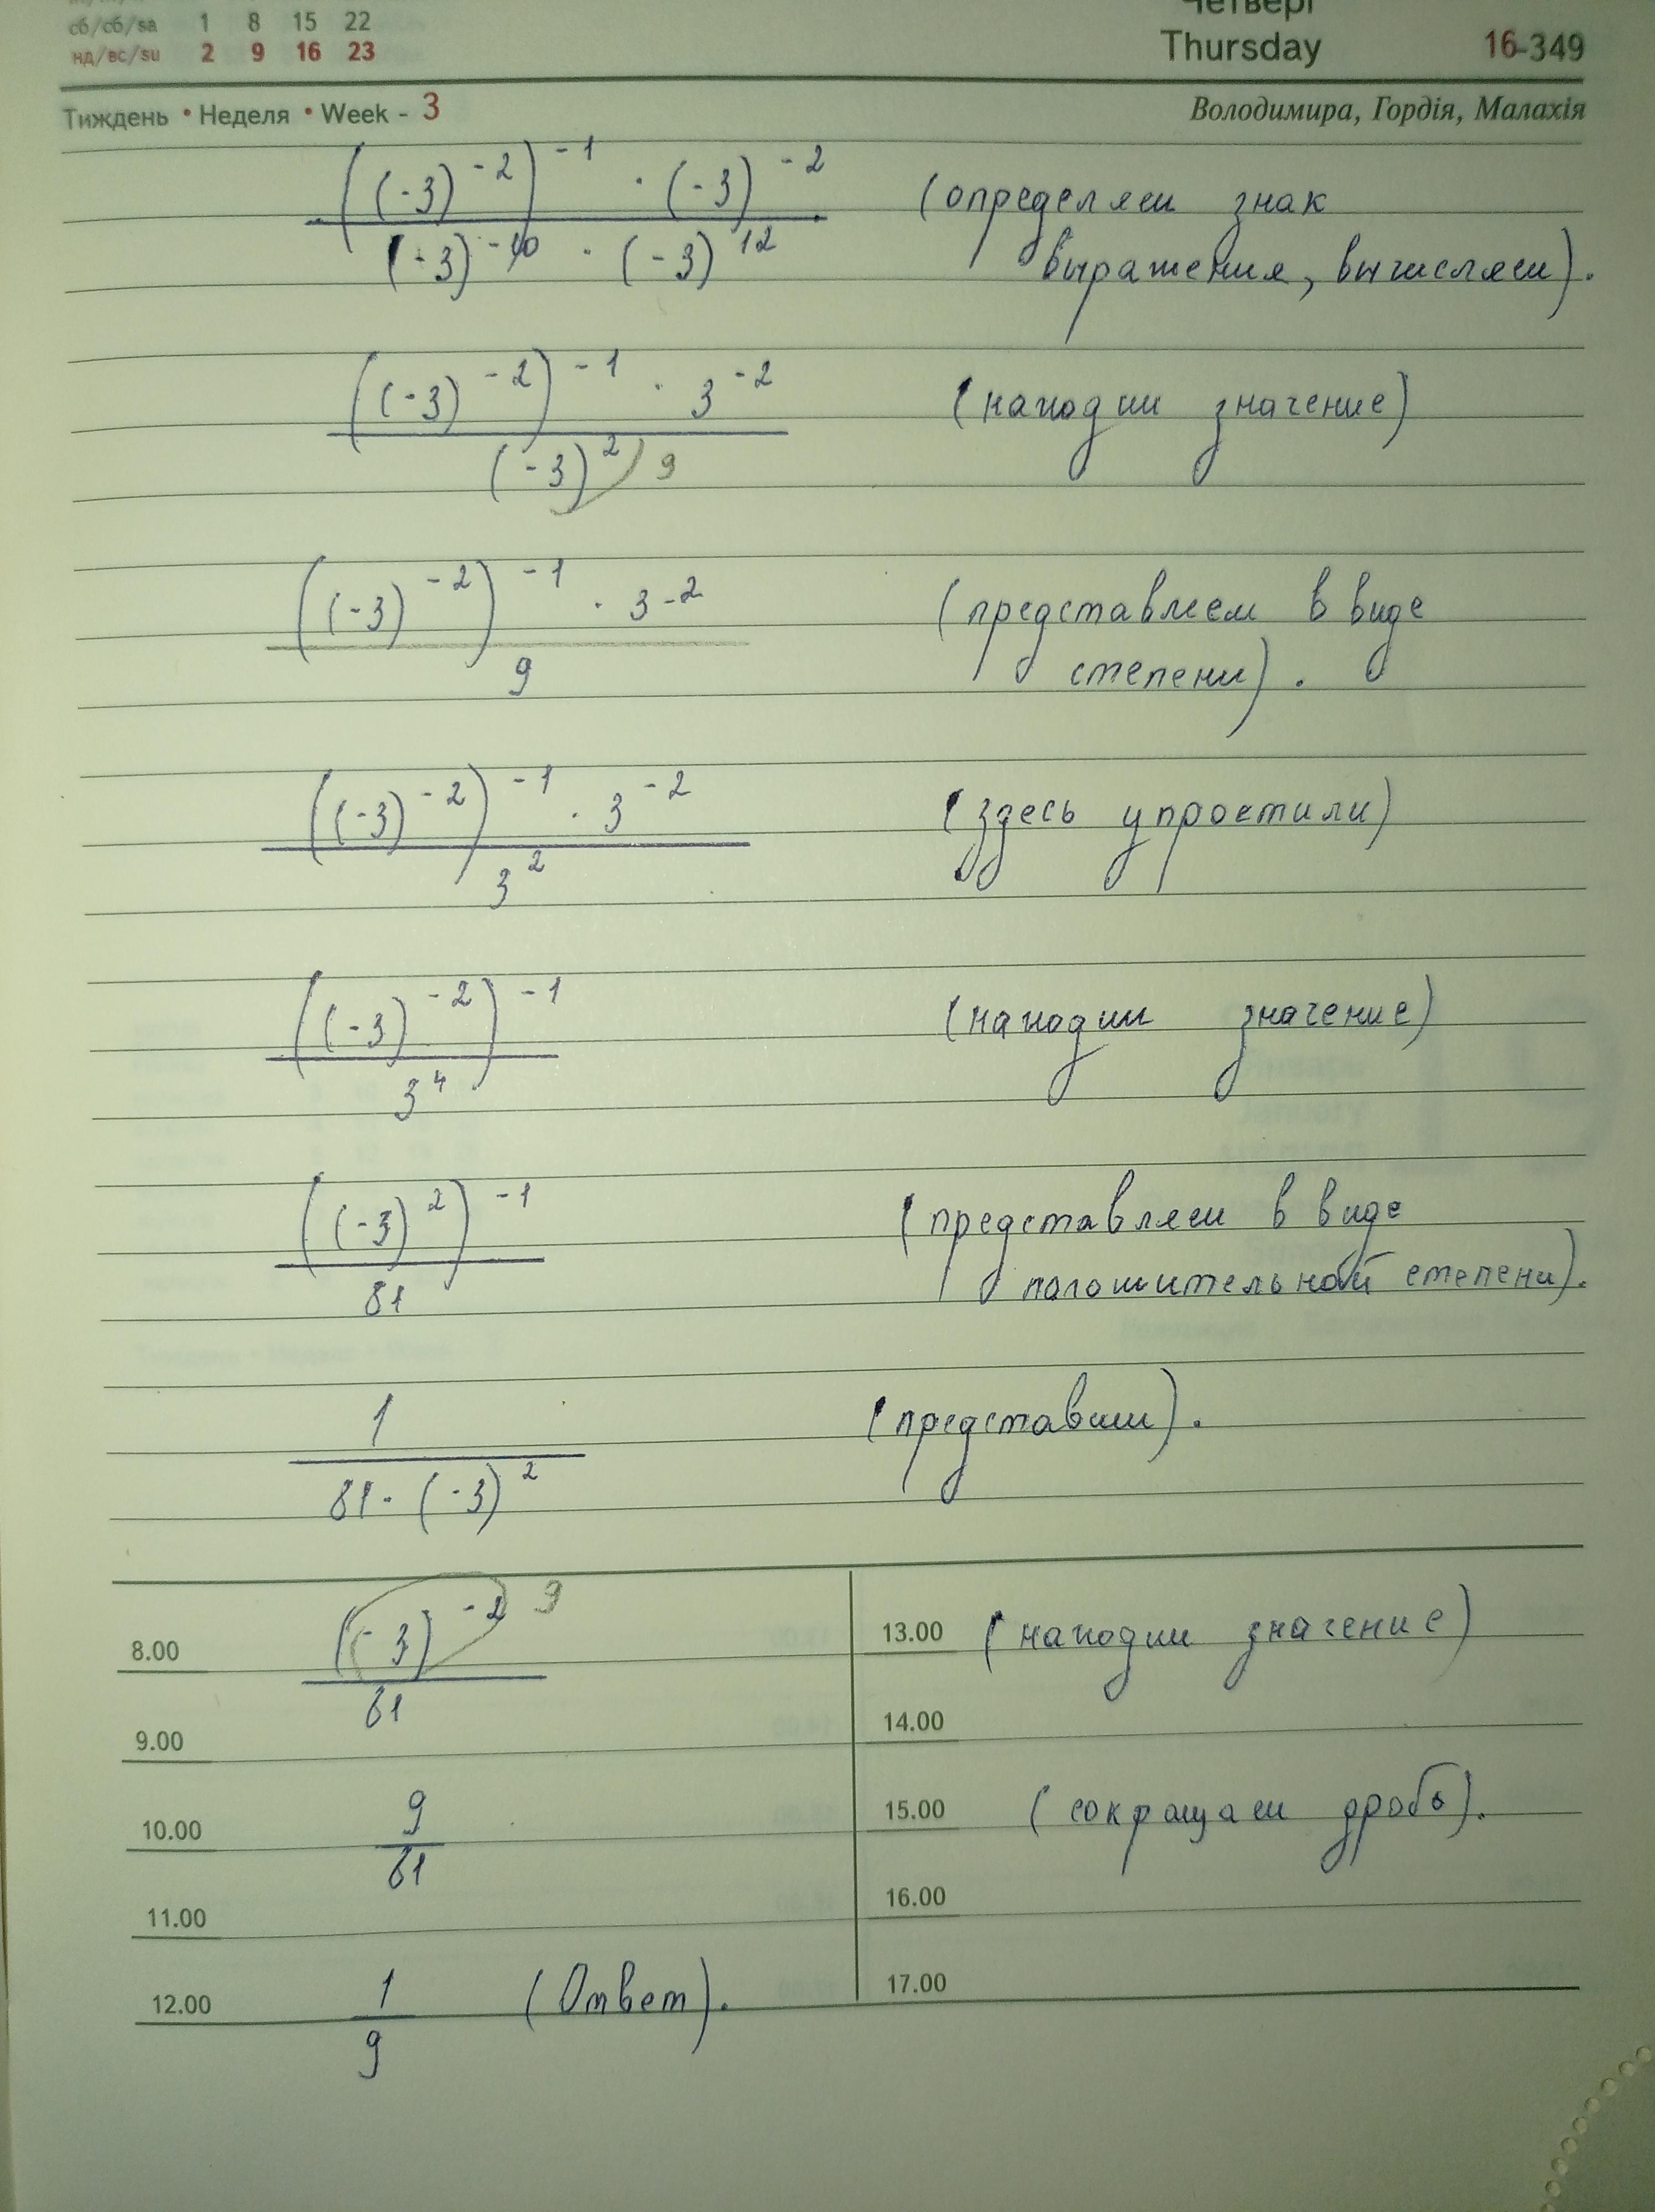 сб/сб/sa 1 8 15 22
нд/вс/su 2 9 16 23
Четвер
Thursday 16-349
Тиждень • Неделя • Week - 3
Володимира, Гордія, Малахія
((-3)^-2)^-1 · (-3)^-2 (определяем знак
(-3)^-10 · (-3)^12 выражения, вычисляем).
((-3)^-2)^-1 · 3^-2 (находим значение)
(-3)^2 9
((-3)^-2)^-1 · 3^-2 (представляем в виде
9 степени).
((-3)^-2)^-1 · 3^-2 (здесь упростили)
3^2
((-3)^-2)^-1 (находим значение)
3^4
((-3)^2)^-1 (представляем в виде
81 положительной степени).
1 (представим).
81 · (-3)^2
(-3)^-2 9
8.00 13.00 (находим значение)
81
9.00 14.00
9
10.00 15.00 (сокращаем дробь).
81
11.00 16.00
1 (Ответ).
12.00 17.00
9